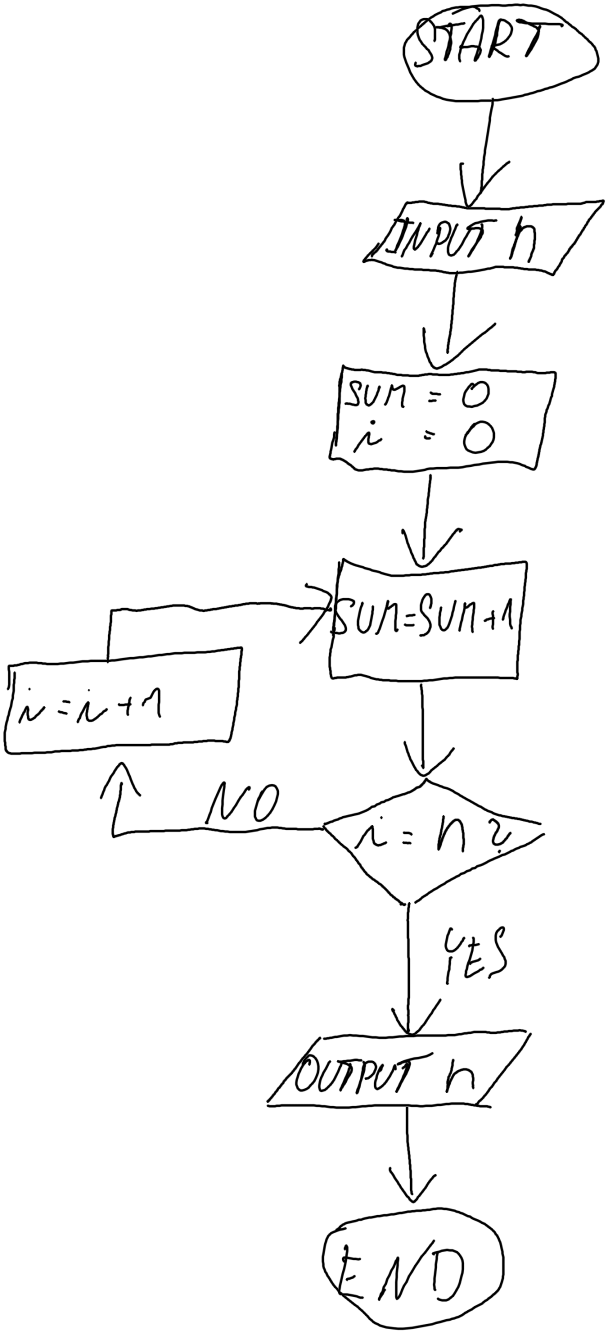 START
INPUT n
SUM = 0
i = 0
SUM=SUM+1
i=i+1
NO
i=n?
YES
OUTPUT n
END